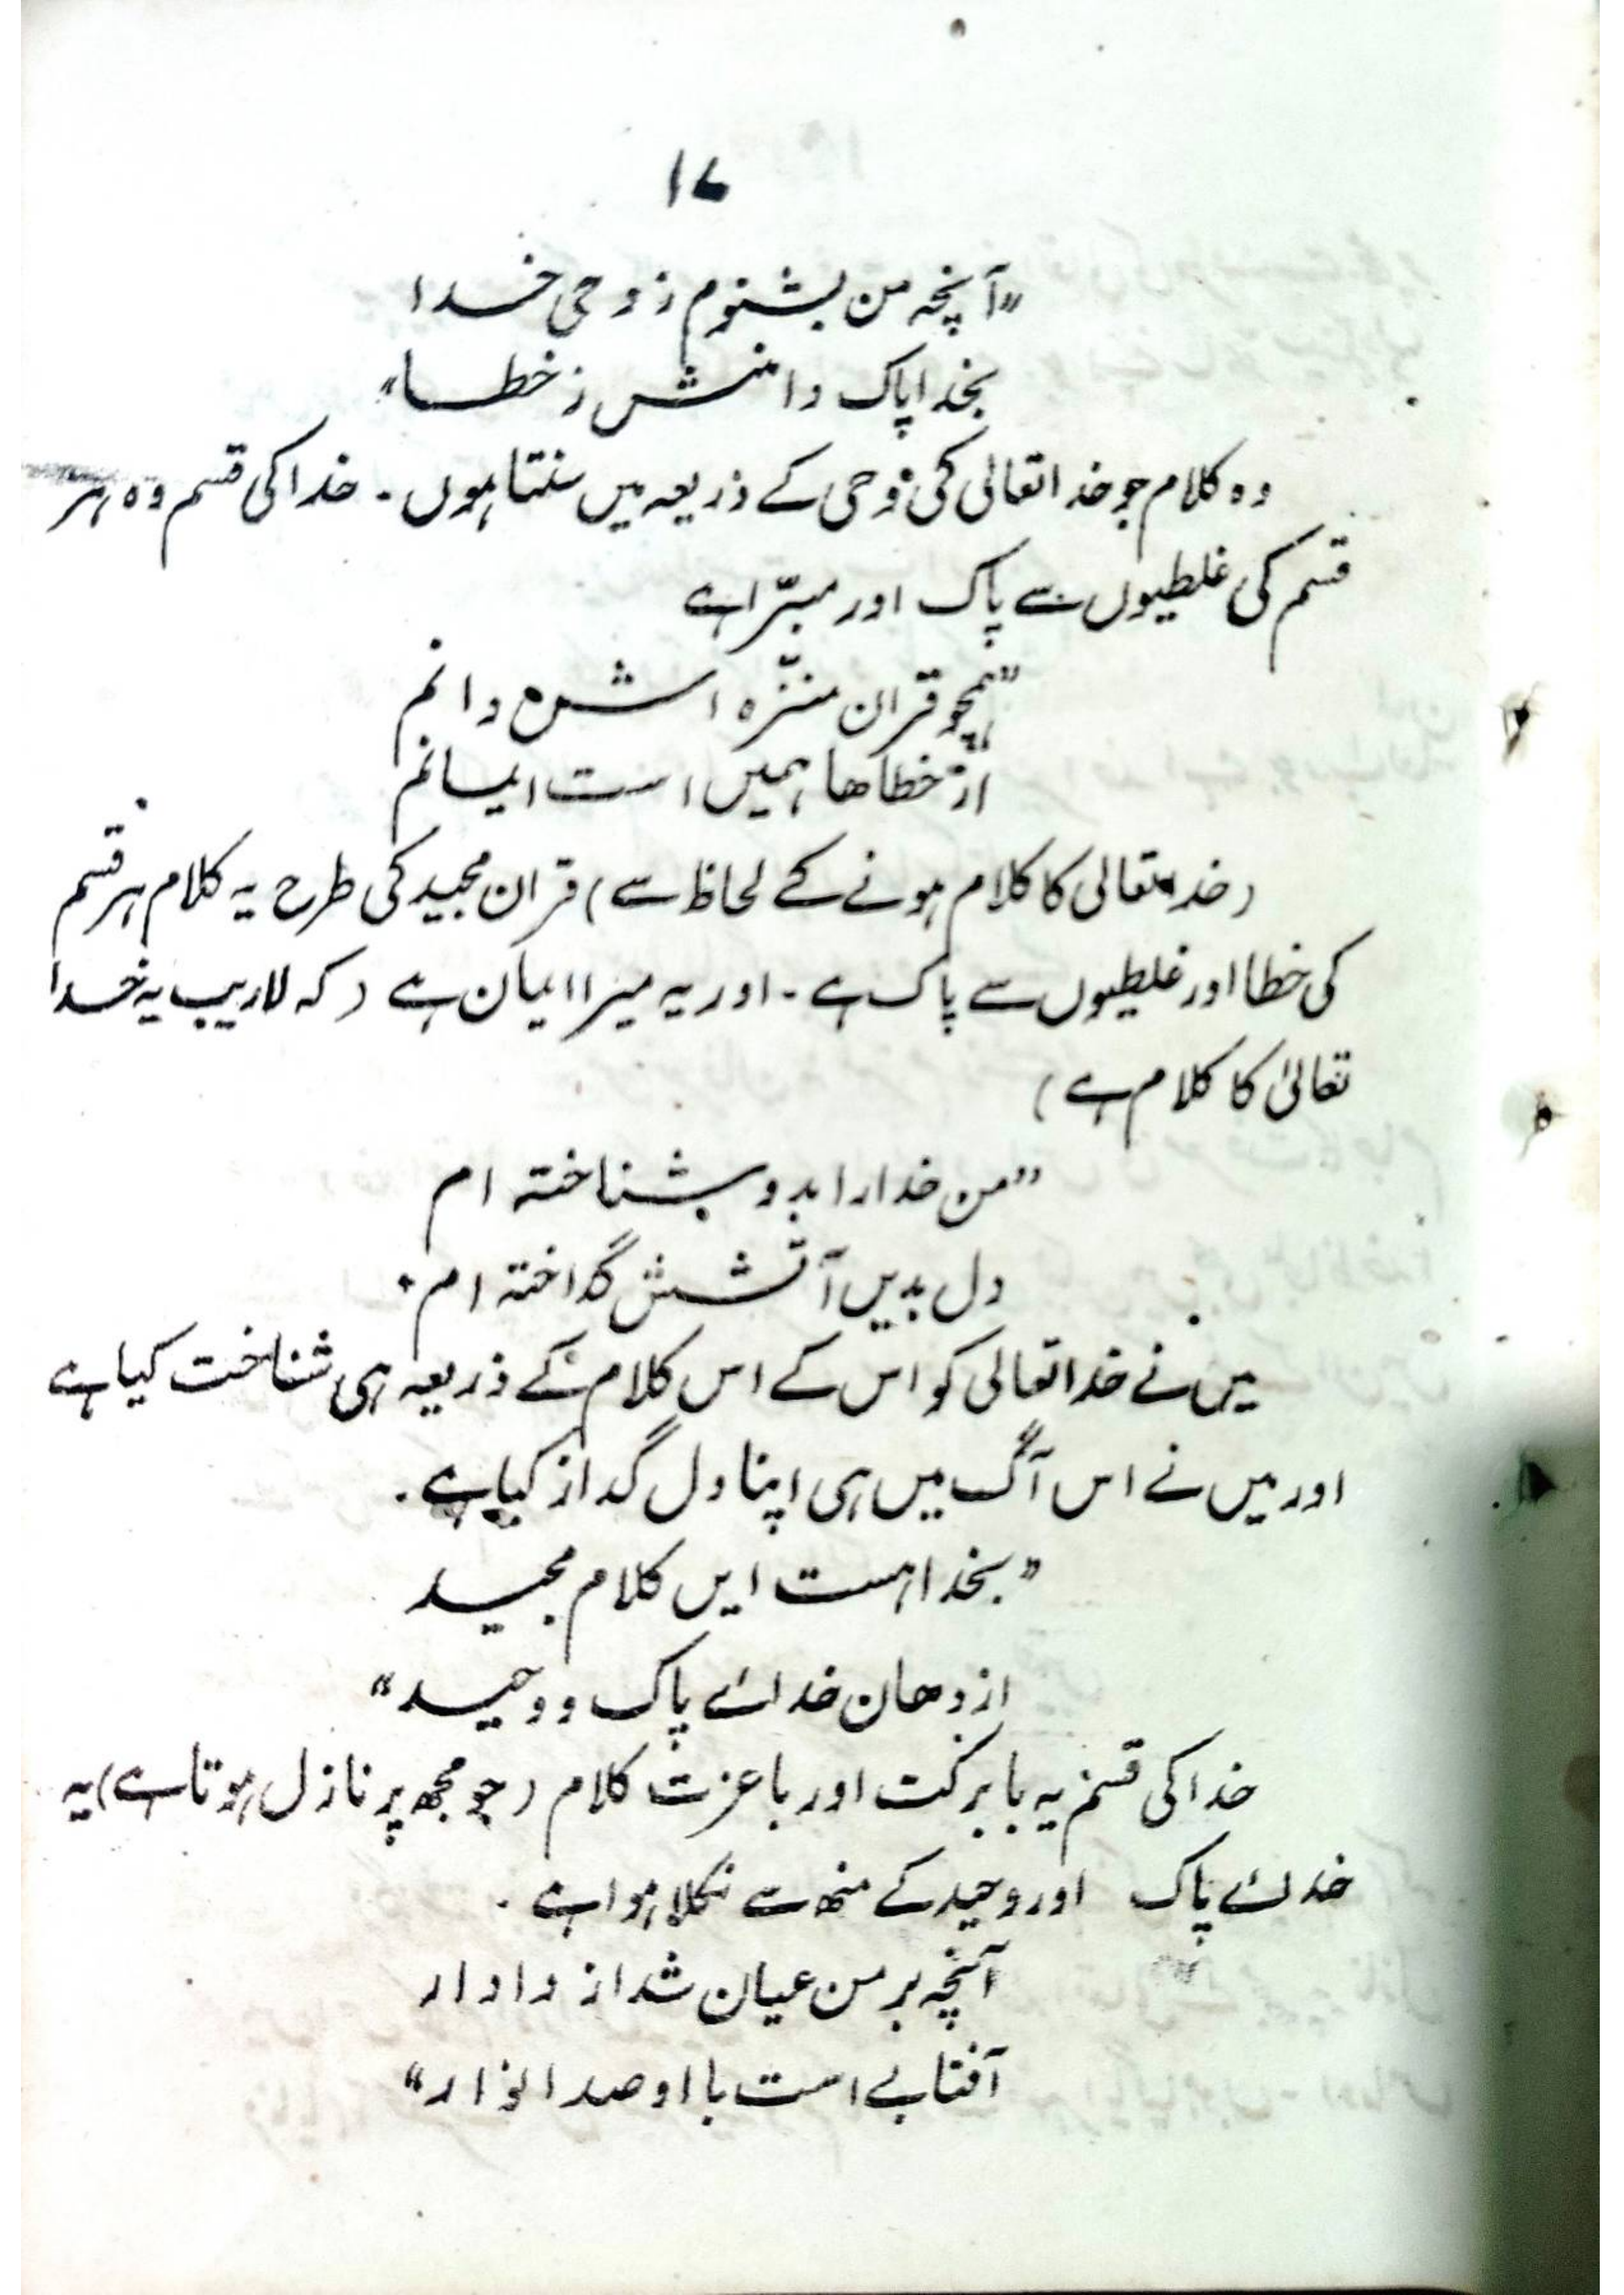 ۱۷
"آنچہ من بشنوم ز وحی خدا
بخدا پاک دانمش ز خطا"
وہ کلام جو خدا تعالی کی وحی کے ذریعہ میں سنتا ہوں ۔ خدا کی قسم وہ ہر
قسم کی غلطیوں سے پاک اور مبرّا ہے
"ہمچو قران منزّہ اش دانم
از خطاها ہمیں است ایمانم
(خدا تعالی کا کلام ہونے کے لحاظ سے) قران مجید کی طرح یہ کلام ہر قسم
کی خطا اور غلطیوں سے پاک ہے ۔ اور یہ میرا ایمان ہے (کہ لاریب یہ خدا
تعالیٰ کا کلام ہے)
"من خدا را بدو بشناختہ ام
دل بدیں آتشش گداختہ ام"
میں نے خدا تعالی کو اس کے اس کلام کے ذریعہ ہی شناخت کیا ہے
اور میں نے اس آگ میں ہی اپنا دل گداز کیا ہے ۔
"بخدا ہست ایں کلام مجید
از دهان خدائے پاک و وحید"
خدا کی قسم یہ بابرکت اور باعزت کلام (جو مجھ پر نازل ہوتا ہے) یہ
خدائے پاک اور وحید کے منھ سے نکلا ہوا ہے ۔
آنچہ بر من عیان شد از دادار
آفتابے است با او صد انوار"